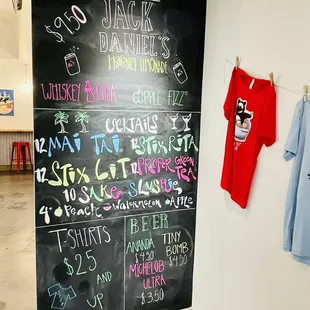 $9.50
JACK
DANIEL'S
HONEY LEMONADE
WHISKEY & COLA
COPPLE FIZZ
COCKTAILS
12 MAI TAI 12 STIX RITA
12 STIX LIT 12 PROPER GREEN
TEA
10 SAKE SLUSHIE
4 • Peach • Watermelon • Apple
T-SHIRTS
$25
AND
UP
BEER
ANANDA
$4.50
TINY
BOMB
$4.50
MICHELOB
ULTRA
$3.50